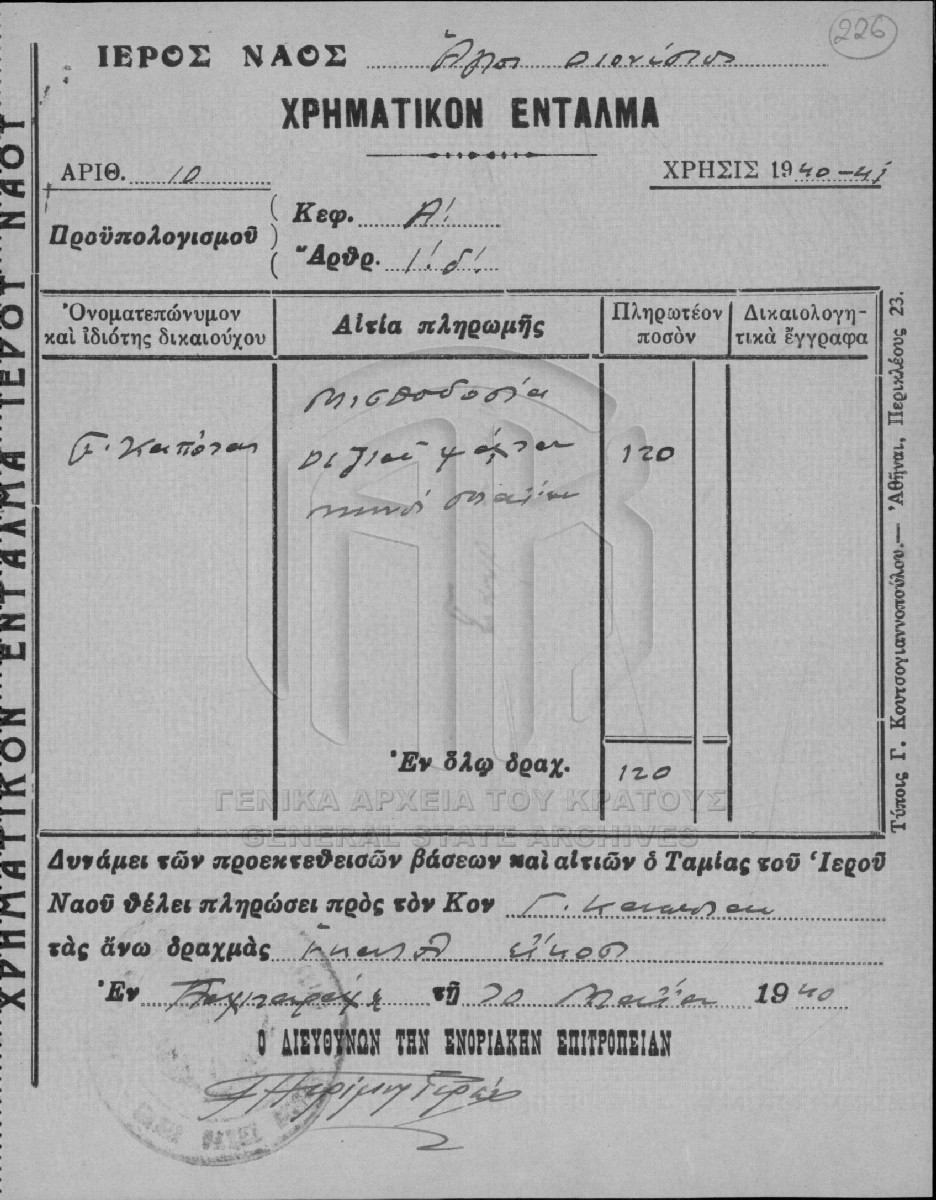 226
ΙΕΡΟΣ ΝΑΟΣ Άγιος Διονύσιος
ΧΡΗΜΑΤΙΚΟΝ ΕΝΤΑΛΜΑ
ΑΡΙΘ. 10
ΧΡΗΣΙΣ 1940-41
Προϋπολογισμοῦ
Κεφ. Α΄.
Ἄρθρ. 1΄. δ΄.
Ὀνοματεπώνυμον καὶ ἰδιότης δικαιούχου
Αἰτία πληρωμῆς
Πληρωτέον ποσὸν
Δικαιολογητικὰ ἔγγραφα
Μισθοδοσία
δεξιού ψάλτου 120
μηνός
Ἐν ὅλῳ δραχ. 120
ΓΕΝΙΚΑ ΑΡΧΕΙΑ ΤΟΥ ΚΡΑΤΟΥΣ
GENERAL STATE ARCHIVES
Δυνάμει τῶν προεκτεθεισῶν βάσεων καὶ αἰτιῶν ὁ Ταμίας τοῦ Ἱεροῦ
Ναοῦ θέλει πληρώσει πρὸς τὸν Κον Γ.
τὰς ἄνω δραχμὰς εκατόν είκοσι
Ἐν τῇ Μαΐου 1940
Ο ΔΙΕΥΘΥΝΩΝ ΤΗΝ ΕΝΟΡΙΑΚΗΝ ΕΠΙΤΡΟΠΕΙΑΝ
ΧΡΗΜΑΤΙΚΟΝ ΕΝΤΑΛΜΑ ΙΕΡΟΥ ΝΑΟΥ
Τύποις Γ. Κουτσογιαννοπούλου.— Ἀθῆναι, Περικλέους 23.